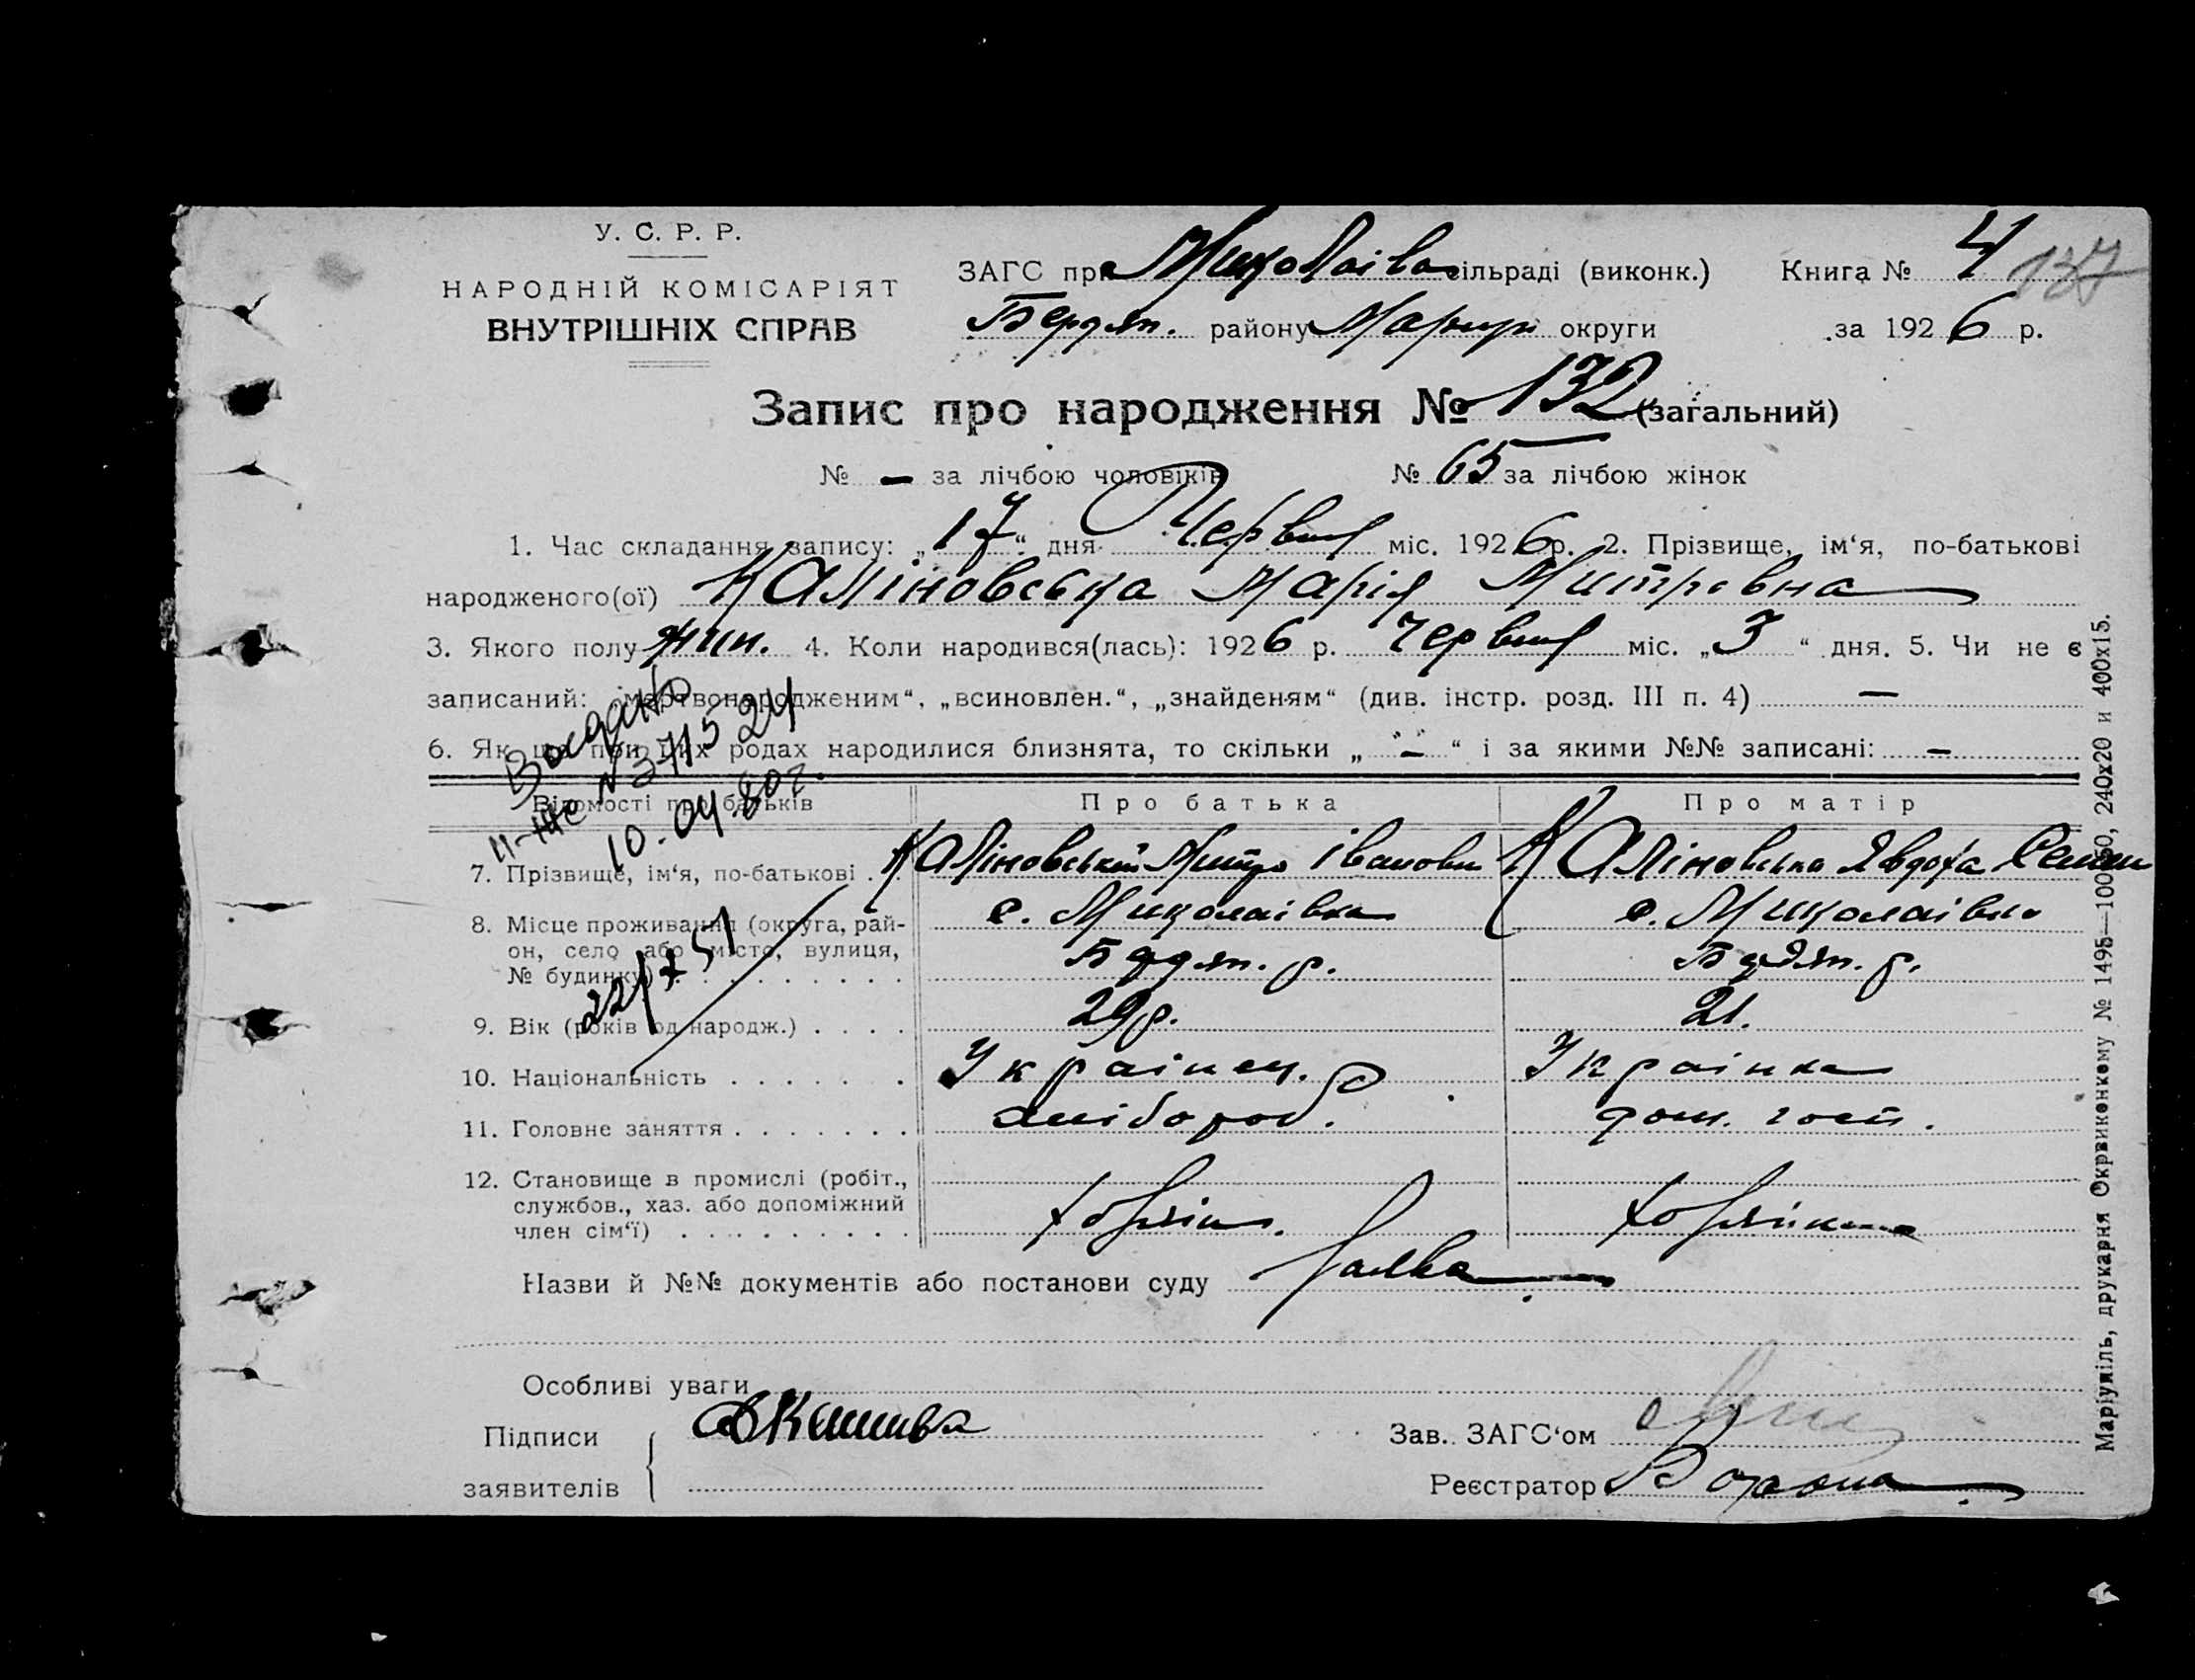 У. С. Р. Р.
НАРОДНІЙ КОМІСАРІЯТ
ВНУТРІШНІХ СПРАВ
ЗАГС при Миколаївс сільраді (виконк.) Книга № 4 137
Бердян. району Маріуп округи за 1926 р.
Запис про народження № 132 (загальний)
№ — за лічбою чоловіків № 65 за лічбою жінок
1. Час складання запису: „17“ дня Червня міс. 1926 р. 2. Прізвище, ім‘я, по-батькові
народженого(ої) Каліновська Марія Митровна
3. Якого полу жин. 4. Коли народився(лась): 1926 р. Червня міс. „3“ дня. 5. Чи не є
записаний: „мертвонародженим“, „всиновлен.“, „знайденям“ (див. інстр. розд. III п. 4) —
6. Як що при цих родах народилися близнята, то скільки „—“ і за якими №№ записані: —
10.04.80г.
Відомості про батьків Про батька Про матір
7. Прізвище, ім‘я, по-батькові . . Каліновський Митро Іванови Каліновська Явдоха Семен
8. Місце проживання (округа, рай-
он, село або місто, вулиця,
№ будинку) . . . . . . . . .
с. Миколаівка с. Миколаівка
Бердян. р. Бердян. р.
9. Вік (років од народж.) . . . . 29 р. 21.
10. Національність . . . . . . . Українец. Українка
11. Головне заняття . . . . . . . хлібороб. дом. госп.
12. Становище в промислі (робіт.,
службов., хаз. або допоміжний
член сім‘ї) . . . . . . . . . .
Назви й №№ документів або постанови суду Заява
Особливі уваги
Підписи
заявителів
Зав. ЗАГС‘ом
Реєстратор
Маріупіль, друкарня Окрвиконкому № 1495—100×50, 240х20 и 400х15.